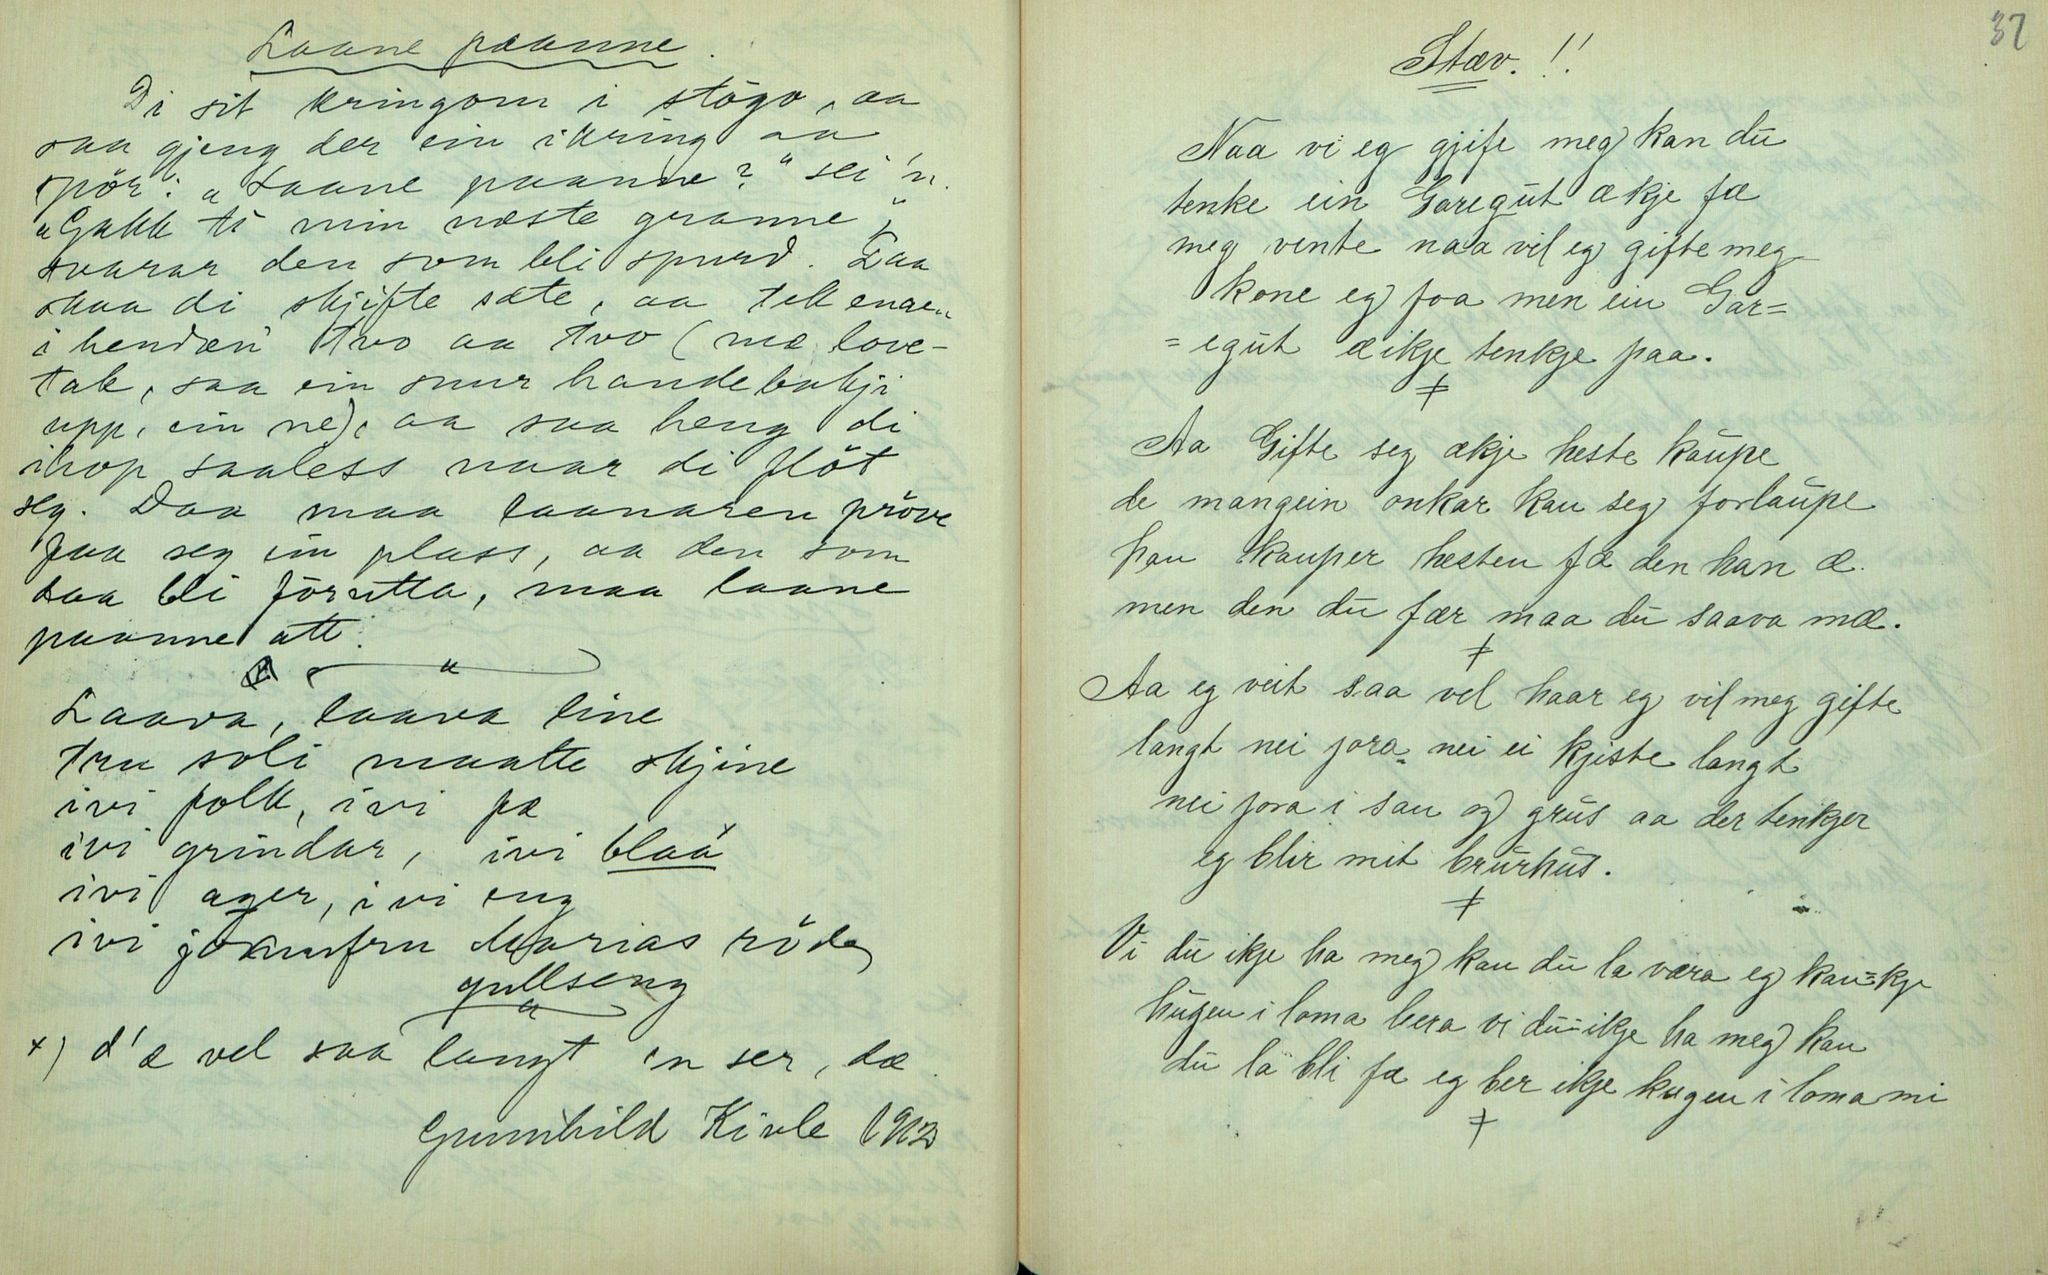 Laane paanne.
Di sit kringom i stōgo, aa
saa gjeng der ein ikring aa
spör: „Laane paanne?“ sei 'n.
„Gakk ti min næste granne“,
svarar den som bli spurd. Daa
skaa di skjifte sæte, aa tek
i hendæn tvo aa tvo (mæ love-
tak, saa ein snur handebakji
upp, ein ne), aa saa heng di
ihop saaless naar di flöt
seg. Daa maa laanaren pröve
faa seg ein plass, aa den som
daa bli förutta, maa laane
paanne att.
Laava, laava line
tru soli maatte skjine
ivi folk, ivi fæ
ivi grindar, ivi blaa
ivi ager, ivi eng
ivi jomfru Marias röde
gullseng
x) d'æ vel saa langt 'n ser, dæ.
Gunnhild Kivle 1912
37
Stæv.!!
Naa vi eg gjife meg kan du
tenke ein Garegut ækje fæ
meg vente naa vil eg gifte meg
kone eg foa men ein Gar=
=egut æikje tenkje paa.
Aa Gifte seg ækje heste kaupe
de mangein onkar kan seg forlaupe
han kauper hesten fæ den han æ.
men den du fær maa du saava mæ.
Aa eg veit saa vel haar eg vil meg gifte
langt nei jora nei ei kjiste langt
nei jora i san og grus aa der tenkjer
eg blir mit brurhus.
Vi du ikje ha meg kan du la væra eg kan=kje
hugen i loma bera vi du=ikje ha meg kan
du la bli fæ eg ber ikje hugen i loma mi